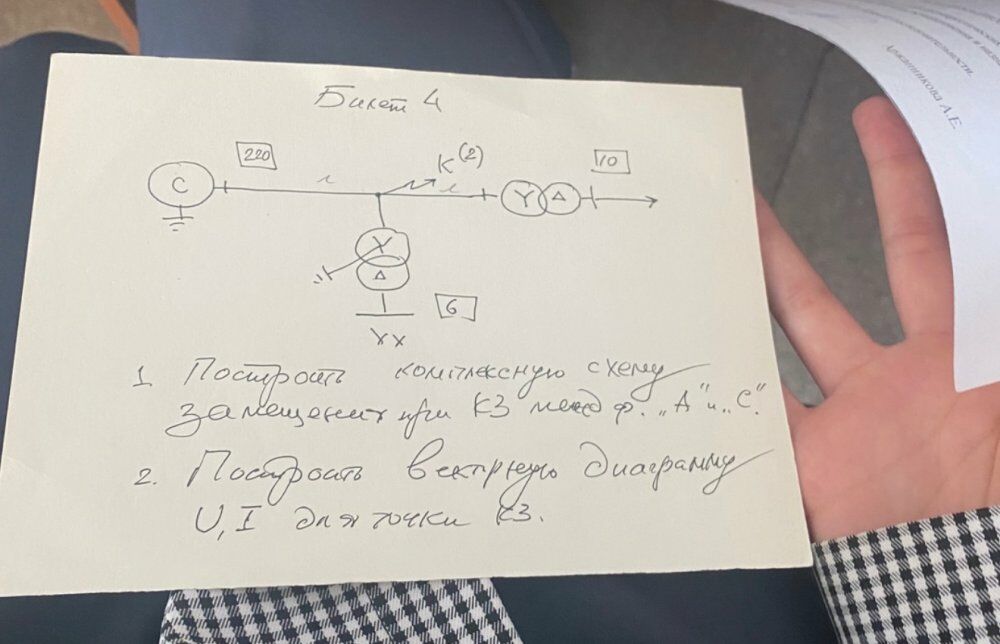 Билет 4
220
К(2)
10
С
л
л
Y
Δ
Y
Δ
6
XX
1. Построить комплексную схему
замещения при КЗ межд ф. „А" и „С".
2. Построить векторную диаграмму
U, I для точки КЗ.
Аржанникова А.Е.